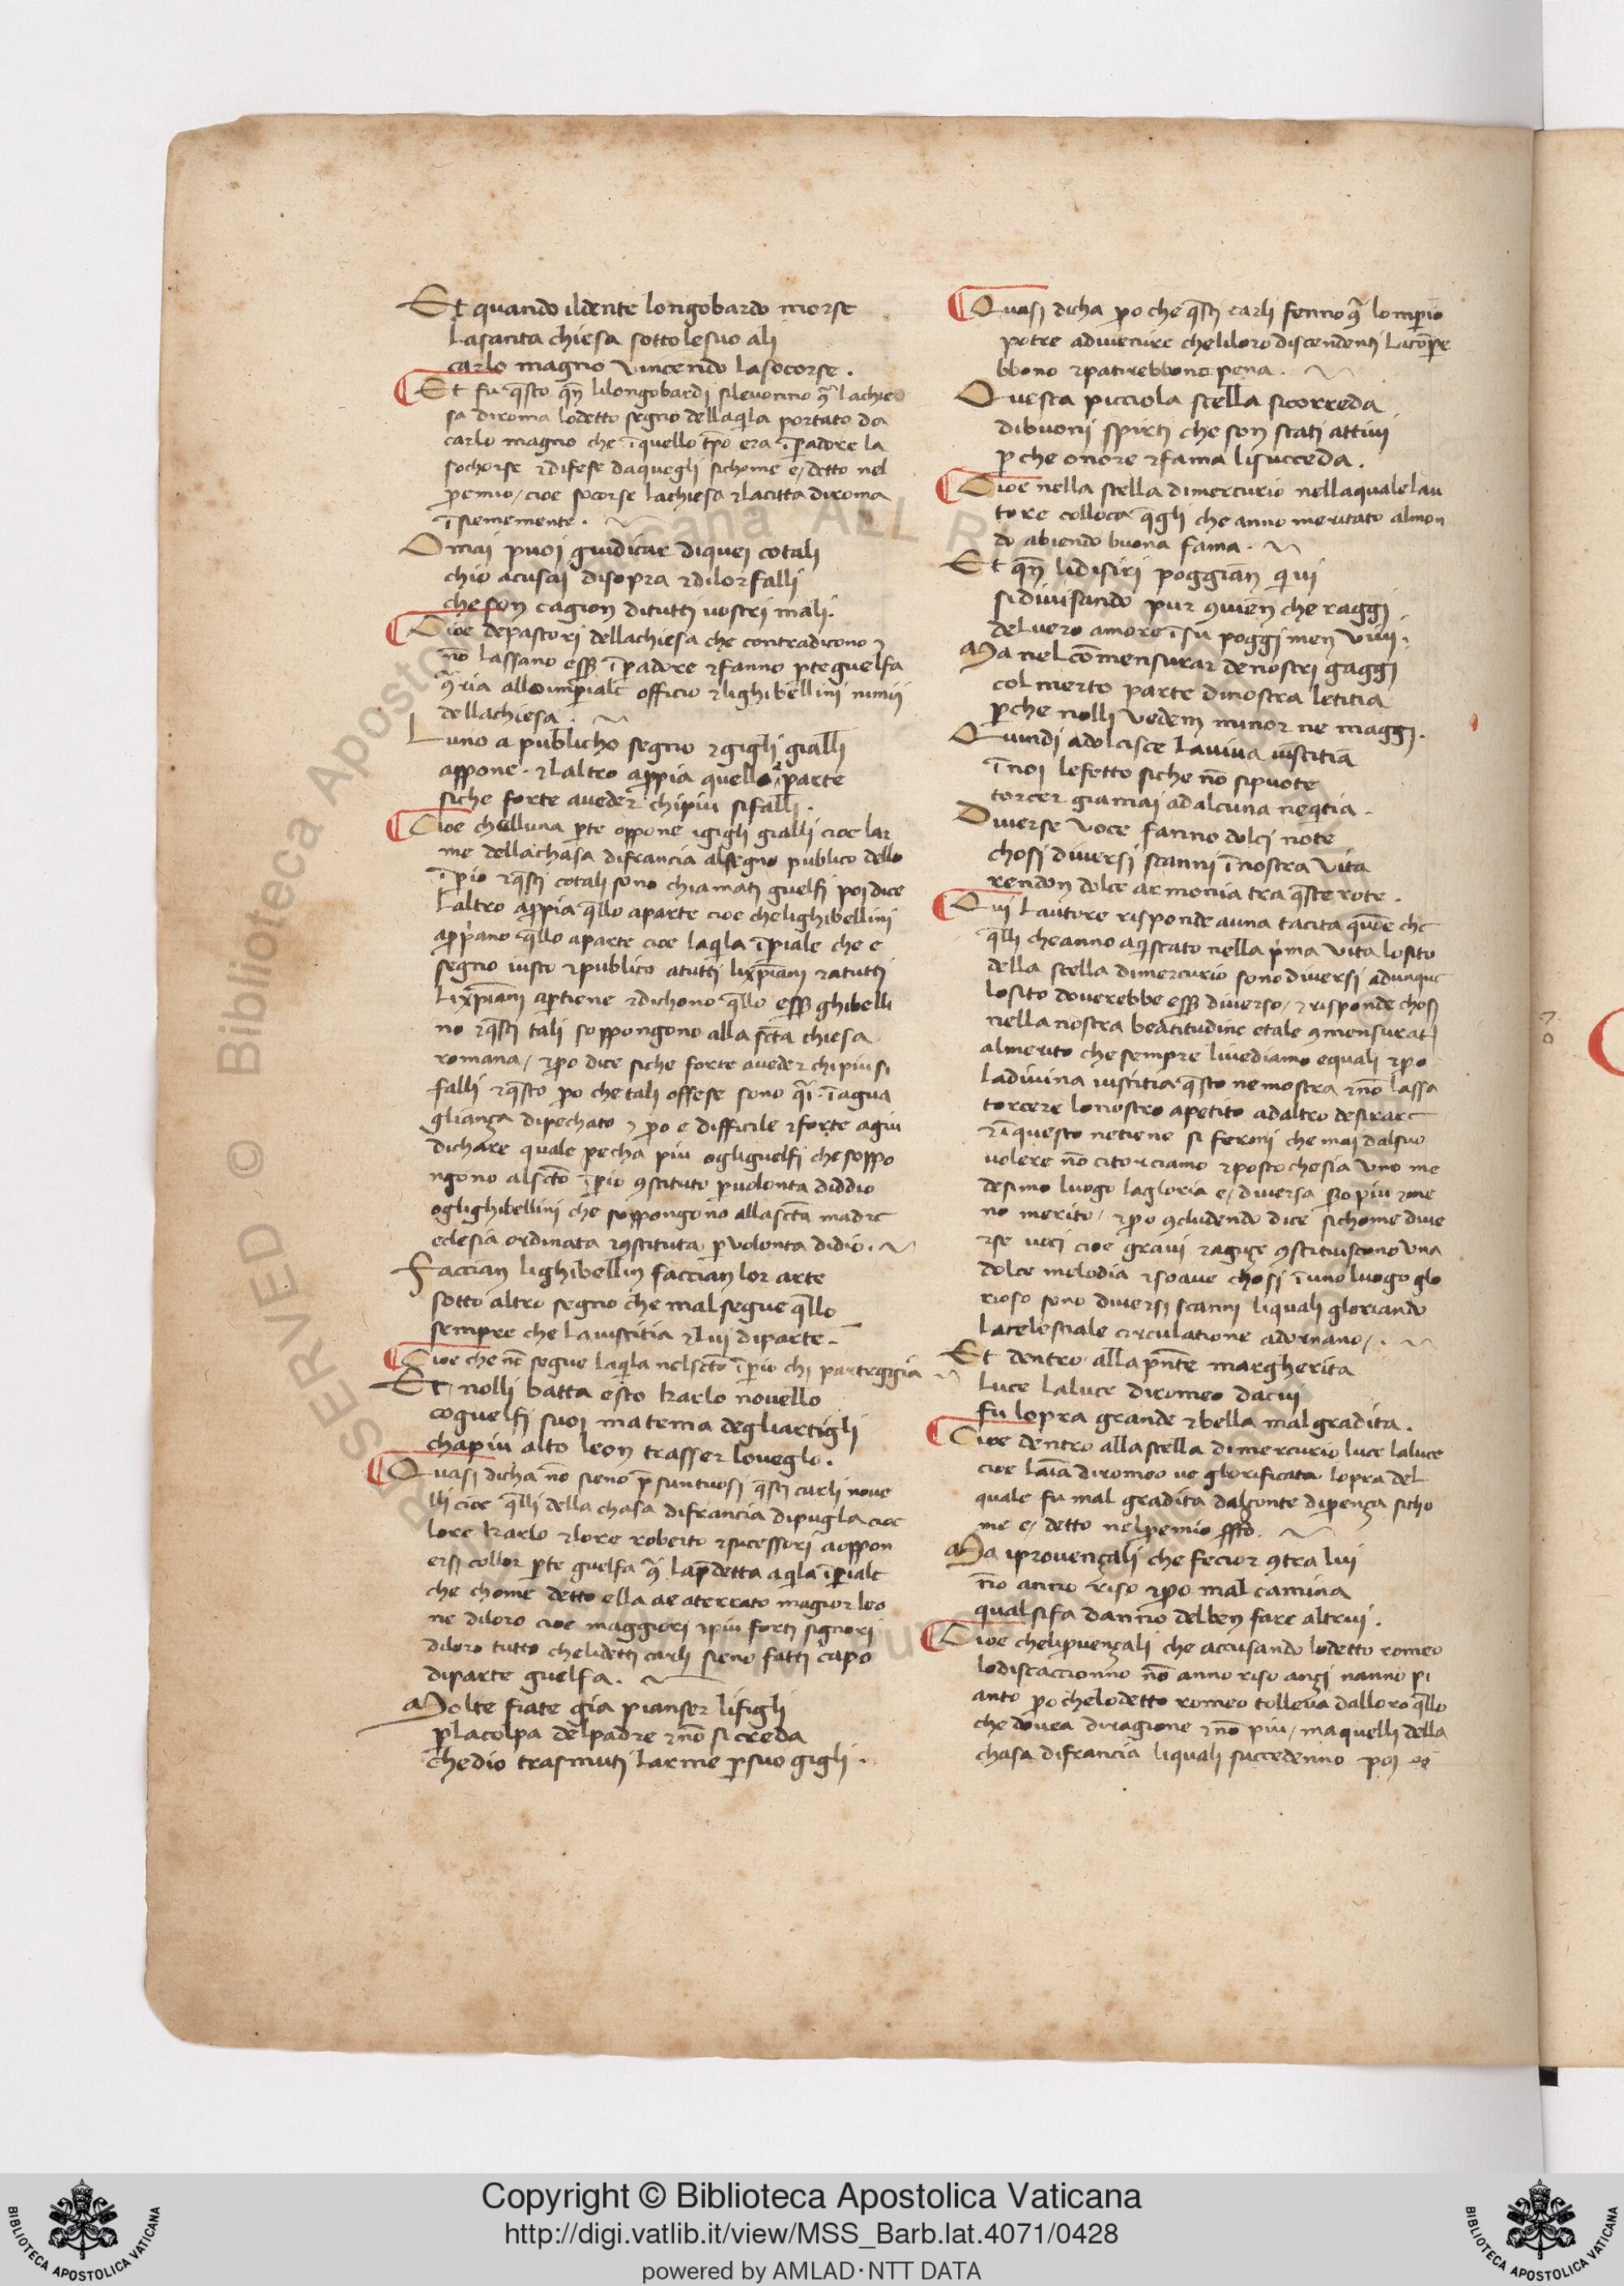 Et quando ildente longobardo morse
Lasancta chiesa sotto lesuo ali
carlo magno vincendo lasocorse.
Et fu q̄sto qn̄ lilongobardi silevorono 9ͣ lachie
sa diroma lodetto segno dellaq̄la portato da
carlo magno che ī quello tp̄o era īp̄adore la
sochorse ⁊ difese daquegli sichome e/ detto nel
ꝓemio/ cioe socorse lachiesa ⁊ lacitta diroma
īsiememente.
Omai puoi guidicar diquei cotali
chio acusai disopra ⁊ dilor falli
che son cagion ditutti vostri mali.
Cioe depastori dellachiesa che contradicono ⁊
nō lassano eẞ īp̄adore ⁊ fanno ꝑte guelfa
9ͣria allo imꝑiale officio ⁊ lighibellini nimici
dellachiesa.
Luno a publicho segno ⁊ gigli gialli
appone. ⁊ laltro appia quello aparte
siche forte aveder chipiu si falli.
Cioe chelluna ꝑte oppone igigli gialli cioe lar
me dellachasa difrancia alsegno publico dello
īꝑio ⁊ q̄sti cotali sono chiamati guelfi poi dice
Laltro appia q̄llo aparte cioe chelighibellini
appiano q̄llo aparte cioe laq̄la īꝑiale che e
segno iusto ⁊ publico atutti lixp̄iani ⁊ atutti
Lixp̄iani aꝑtiene ⁊ dichono q̄llo eẞ ghibelli
no ⁊ q̄sti tali soppongono alla sc̄ta chiesa
romana/ ⁊ ꝑo dice siche forte aveder chi piu si
falli ⁊ q̄sto ꝑo che tali offese sono q̄i īagua
glianza dipechato ⁊ ꝑo e difficile ⁊ forte agiu
dichare quale pecha piu ogliguelfi che soppo
ngono alsc̄to īꝑio 9stituto ꝑ volonta diddio
oglighibellini che soppongono allasc̄ta madre
eclesia ordinata ⁊ 9stituta ꝑ volonta didio.
Faccian lighibellin faccian lor arte
sotto altro segno che mal segue q̄llo
sempre che la iustitia ⁊ lui diparte.
Cioe che nō segue laq̄la nelsc̄to īꝑio chi parteggia
Et nolli batta esto karlo novello
coguelfi suoi ma tema degliartigli
chapiu alto leon trasser loveglo.
Quasi dicha nō sieno p̄suntuosi q̄sti carli nove
lli cioe q̄lli della chasa difrancia dipugla cioe
lore karlo ⁊ lore roberto ⁊ sucessori aoppon
ersi collor ꝑte guelfa 9ͣ lap̄detta aq̄la īꝑiale
che chome detto ella ae aterrato magior leo
ne diloro cioe maggiori ⁊ piu forti signori
diloro tutto chelidetti carli sieno fatti capo
diparte guelfa.
Molte fiate gia pianser lifigli
ꝑ lacolpa delpadre ⁊ nō si creda
chedio trasmuti larme ꝑ suo gigli.
Quasi dicha ꝑo che q̄sti carli fenno 9ͣ lomꝑio
potre advenire cheliloro discendenti lacōꝑre
bbono ⁊ patirebbono pena.
Questa picciola stella sicorreda
dibuoni spirti che son stati attivi
ꝑ che onore ⁊ fama lisucceda.
Cioe nella stella dimercurio nellaquale lau
tore colloca q̄gli che anno meritato almon
do abiendo buona fama.
Et qn̄ lidisiri poggian̄ qivi
si divisando pur 9vien che raggi
del vero amore ī su poggi men vivi.
Ma nel cōmensurar denostri gaggi
col merto parte dinostra letitia
ꝑche nolli vedem minor ne maggi.
Quindi adolcisce la viva iustitia
ī noi lefetto siche nō sipuote
torcer giamai ad alcuna neq̄tia.
Diverse voce fanno dolci note
chosi diversi scanni ī nostra vita
rendon dolce armonia tra q̄ste rote.
Qui Lautore risponde auna tacita q̄uone che
q̄lli cheanno aq̄stato nella p̄ma vita losito
della stella dimercurio sono diversi adunque
losito doverebbe eẞ diverso/ ⁊ risponde chosi
nella nostra beatitudine etale 9mensurati
almerito che sempre livediamo equali ⁊ ꝑo
ladivina iustitia q̄sto ne mostra ⁊ nō lassa
torcere lonostro apetito adaltro desirare
⁊ ī questo netiene si fermi che mai dalsuo
volere nō citorciamo ⁊ posto chesia uno me
desimo luogo lagloria e/ diversa ẞo piu ⁊ me
no merito/ ⁊ ꝑo 9cludendo dice sichome dive
rse voci cioe gravi ⁊ agute 9stituiscono una
dolce melodia ⁊ soave chosi ī uno luogo glo
rioso sono diversi scanni liquali gloriando
lacelestiale circulatione adornano/.
Et dentro alla p̄nte margherita
Luce laluce diromeo dacui
fu lopra grande ⁊ bella mal gradita.
Cioe dentro alla stella dimercurio luce laluce
cioe laīa diromeo ne glorificata lopra del
quale fu mal gradita dalconte diꝓenza sicho
me e/ detto nelꝓemio
Ma iprovenzali che fecior 9tra lui
nō anno riso ⁊ ꝑo mal camina
qual sifa danno delben fare altrui.
Cioe cheliꝓvenzali che accusando lodetto romeo
lodiscaccionno nō anno riso anzi nanno pi
anto ꝑo chelodetto romeo tolleva dalloro q̄llo
che dovea diragione ⁊ nō piu/ ma quelli della
chasa difrancia liquali succedenno poi
Copyright © Biblioteca Apostolica Vaticana
http://digi.vatlib.it/view/MSS_Barb.lat.4071/0428
powered by AMLAD·NTT DATA
BIBLIOTECA APOSTOLICA VATICANA
BIBLIOTECA APOSTOLICA VATICANA